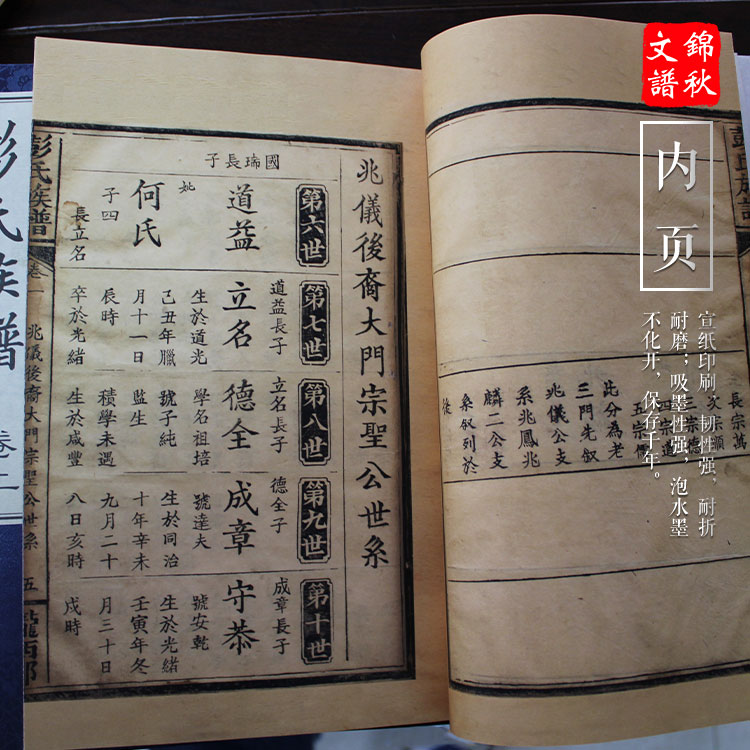 錦秋
文譜
内页
宣纸印刷，韧性强，耐折
耐磨；吸墨性强，泡水墨
不化开，保存千年。
長宗萬
次宗順
三宗德
四宗道
此分為老
三門先叙
兆儀公支
系兆鳳兆
麟二公支
系叙列於
後
兆儀後裔大門宗聖公世系
第六世
國瑞長子
道益
妣
何氏
子四
長立名
第七世
道益長子
立名
生於道光
己丑年臘
月十一日
辰時
卒於光緒
第八世
立名長子
德全
學名祖培
號子純
監生
積學未遇
生於咸豐
第九世
德全子
成章
號達夫
生於同治
十年辛未
九月二十
八日亥時
第十世
成章長子
守恭
號安乾
生於光緒
壬寅年冬
月三十日
戌時
彭氏族譜
卷一
兆儀後裔大門宗聖公世系
五
隴西郡
彭氏族譜